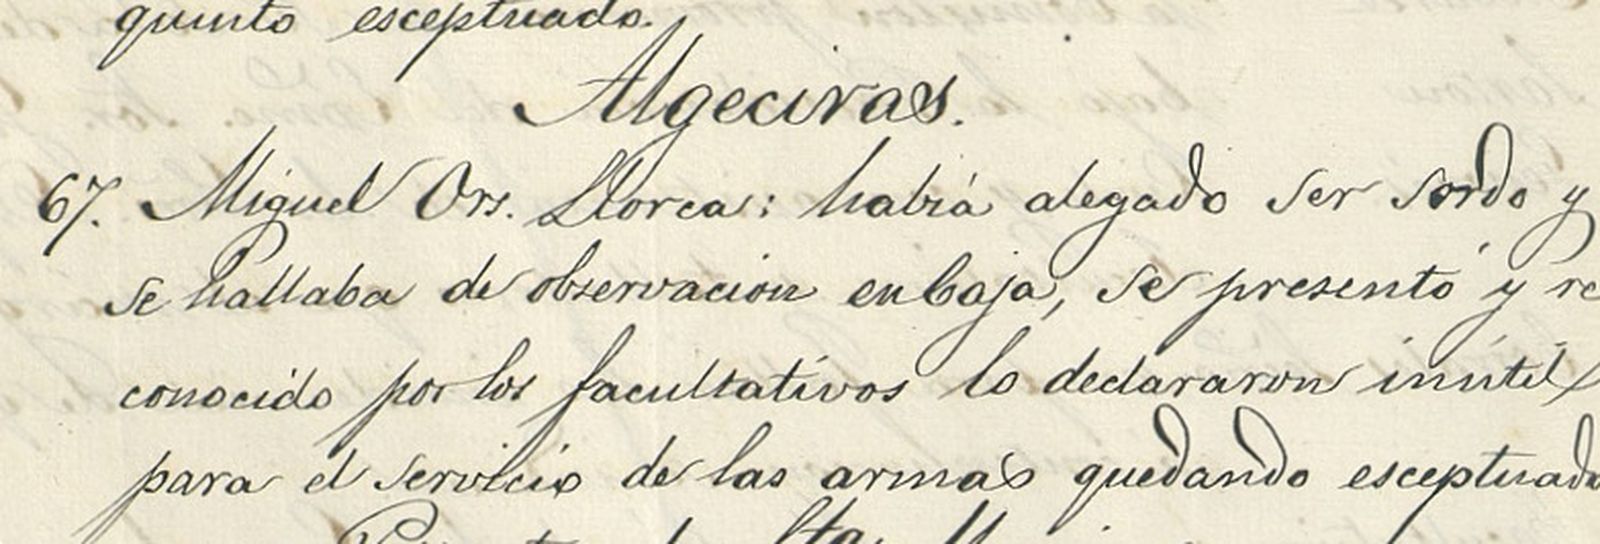 quinto esceptuado.
Algeciras.
67. Miguel Ors. Llorca: había alegado ser sordo y
se hallaba de observacion en baja, se presentó y re
conocido por los facultativos lo declararon inútil
para el servicio de las armas quedando esceptuado